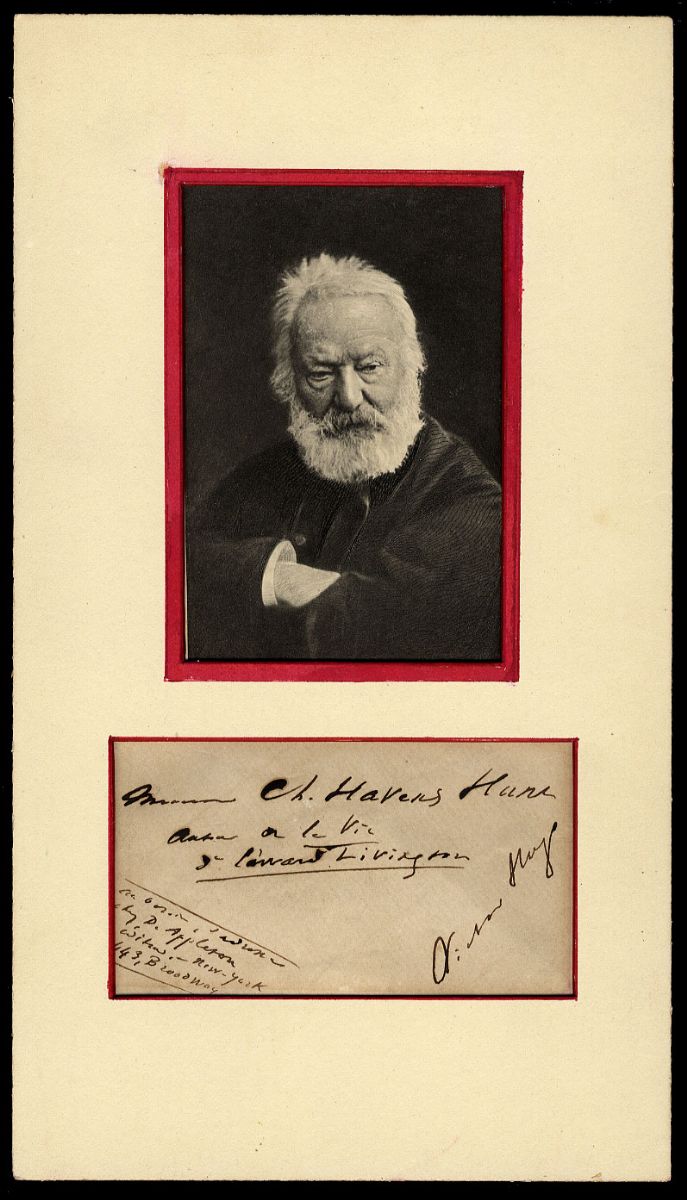 Monsieur Ch. Havens Hunt
Auteur de la Vie
Livingston
Victor Hugo
chez D. Appleton
New-York
443, Broadway